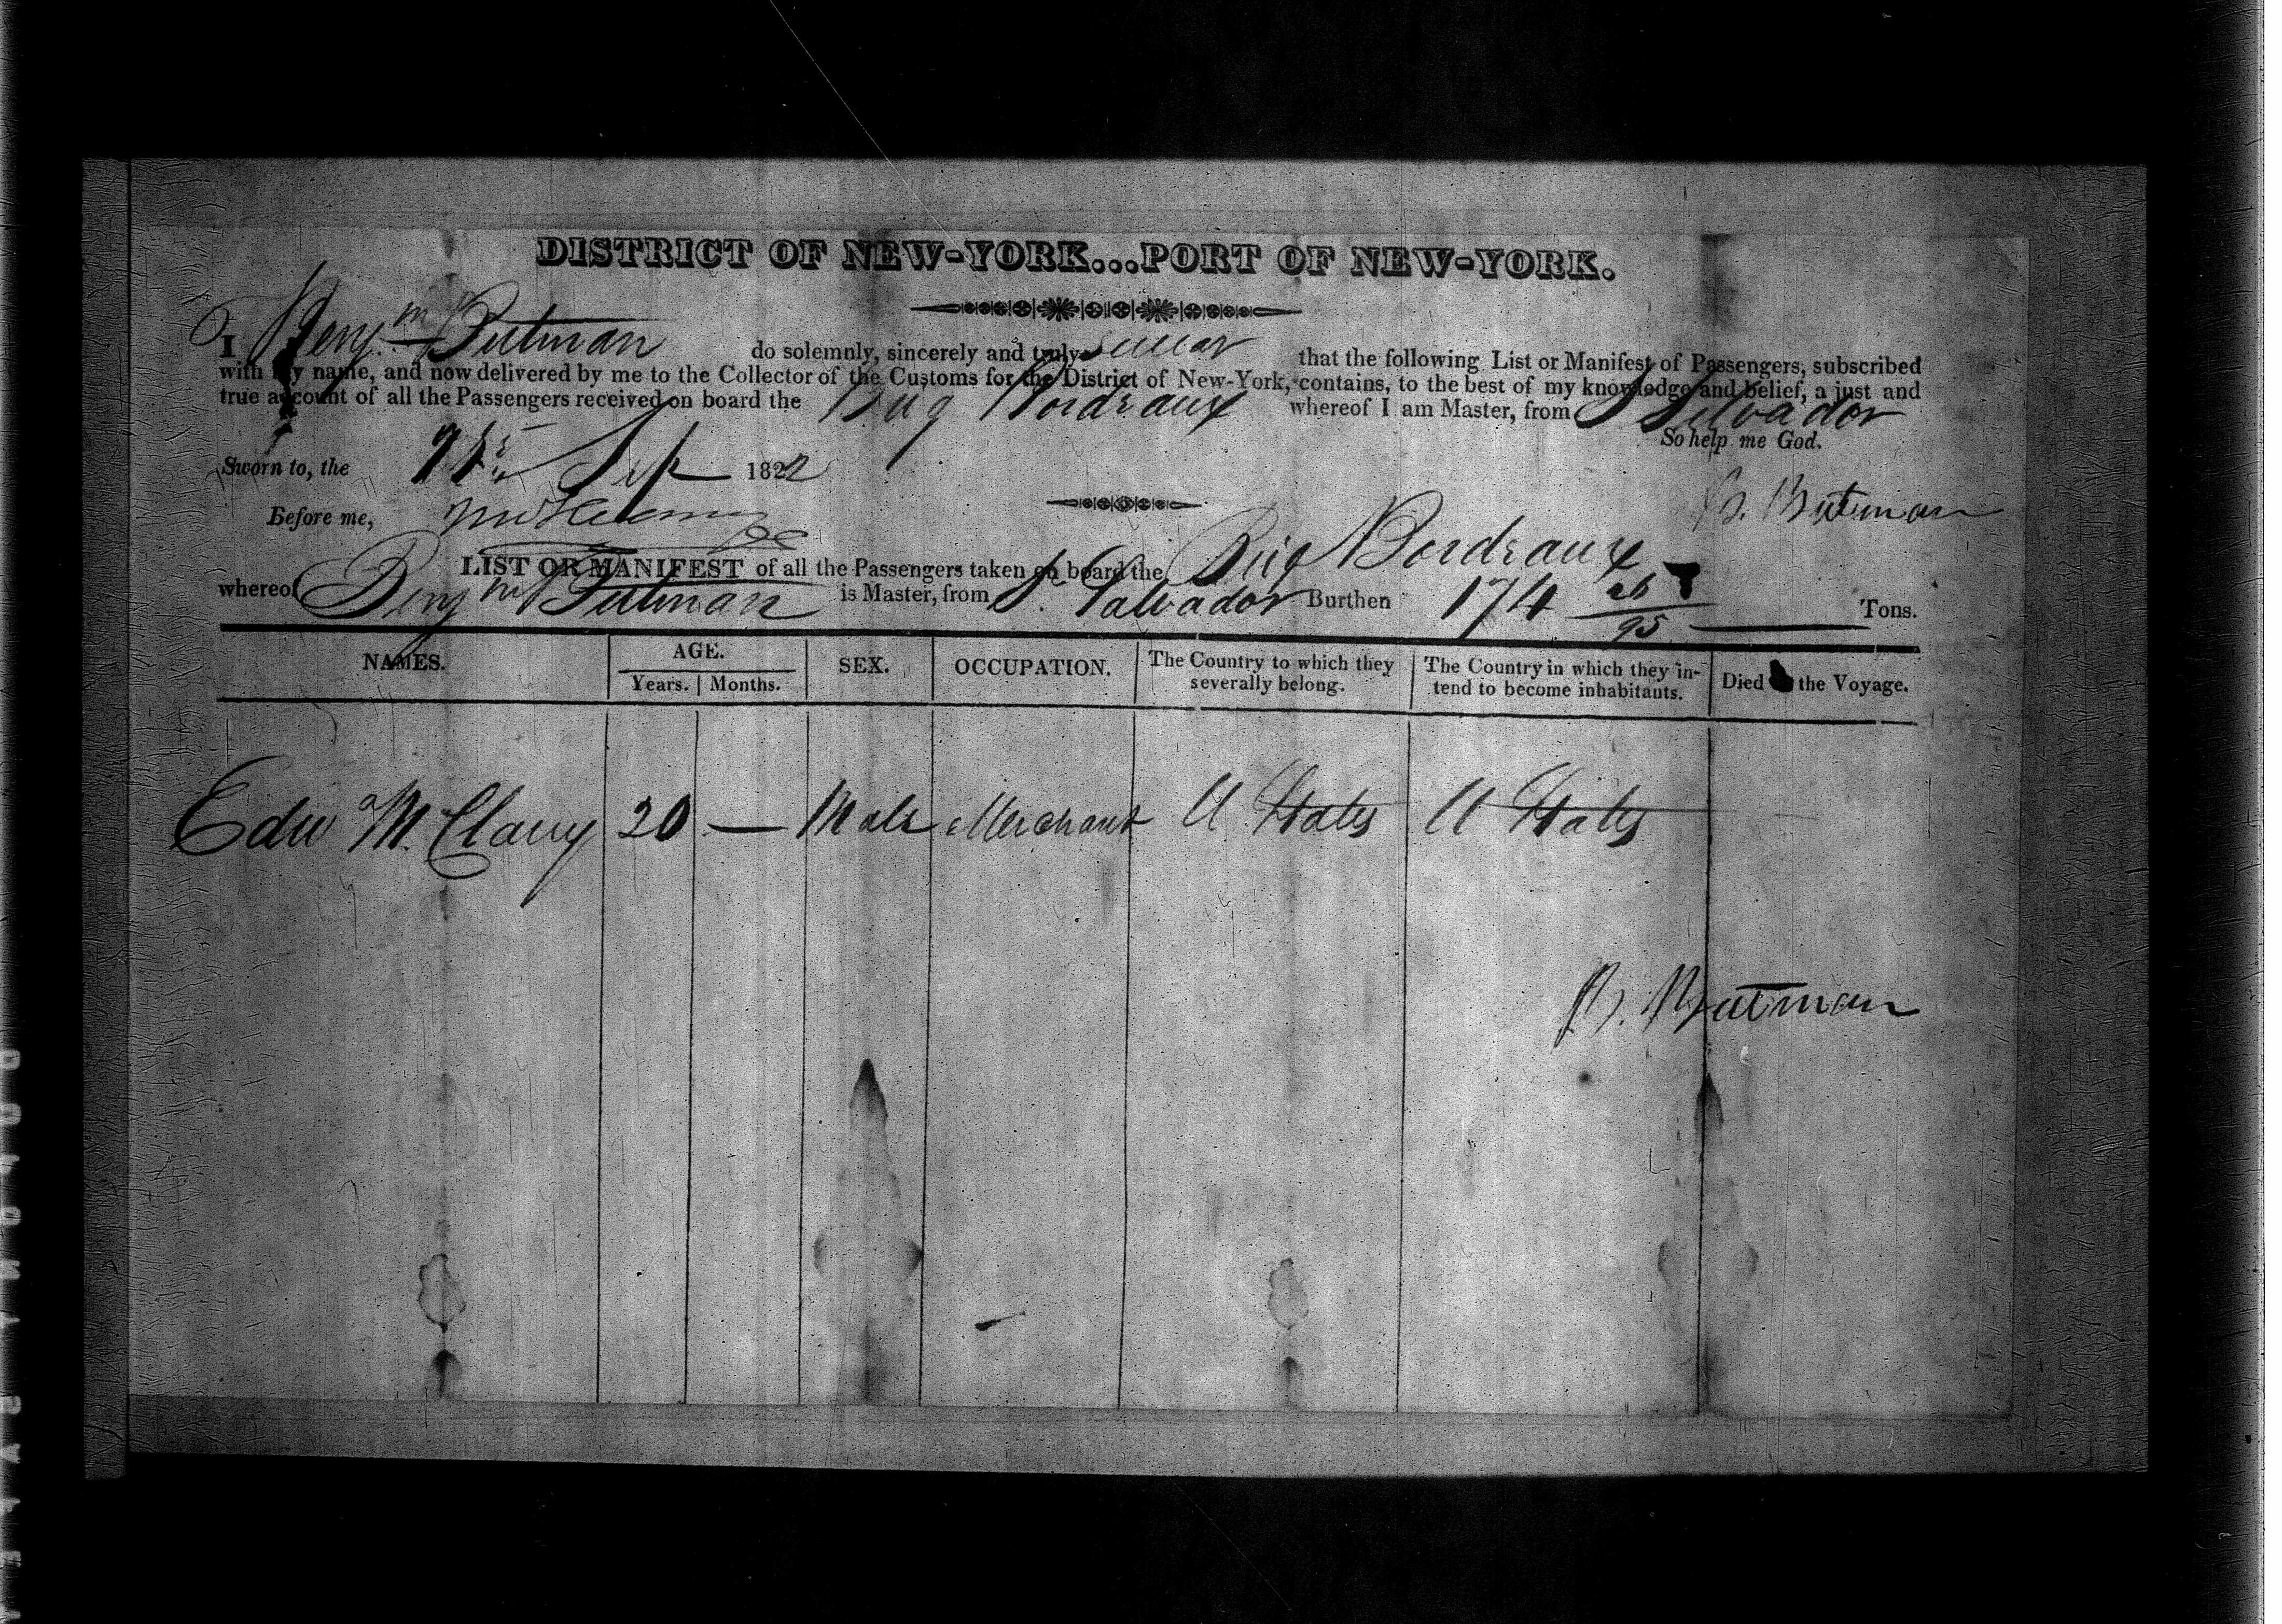 DISTRICT OF NEW-YORK...PORT OF NEW-YORK.
I Benjm Butman do solemnly, sincerely and truly swear that the following List or Manifest of Passengers, subscribed
with my name, and now delivered by me to the Collector of the Customs for the District of New-York, contains, to the best of my knowledge and belief, a just and
true account of all the Passengers received on board the Brig Bordeaux whereof I am Master, from St Salvador
So help me God.
Sworn to, the Sep 1822
B. Butman
Before me,
LIST OR MANIFEST of all the Passengers taken on board the Brig Bordeaux
whereof Benjm Butman is Master, from St Salvador Burthen 174 26/95 Tons.
NAMES. AGE. Years. Months. SEX. OCCUPATION. The Country to which they severally belong. The Country in which they intend to become inhabitants. Died the Voyage.
Edw M. Clary 20 — Male Merchant U States U States
B. Butman